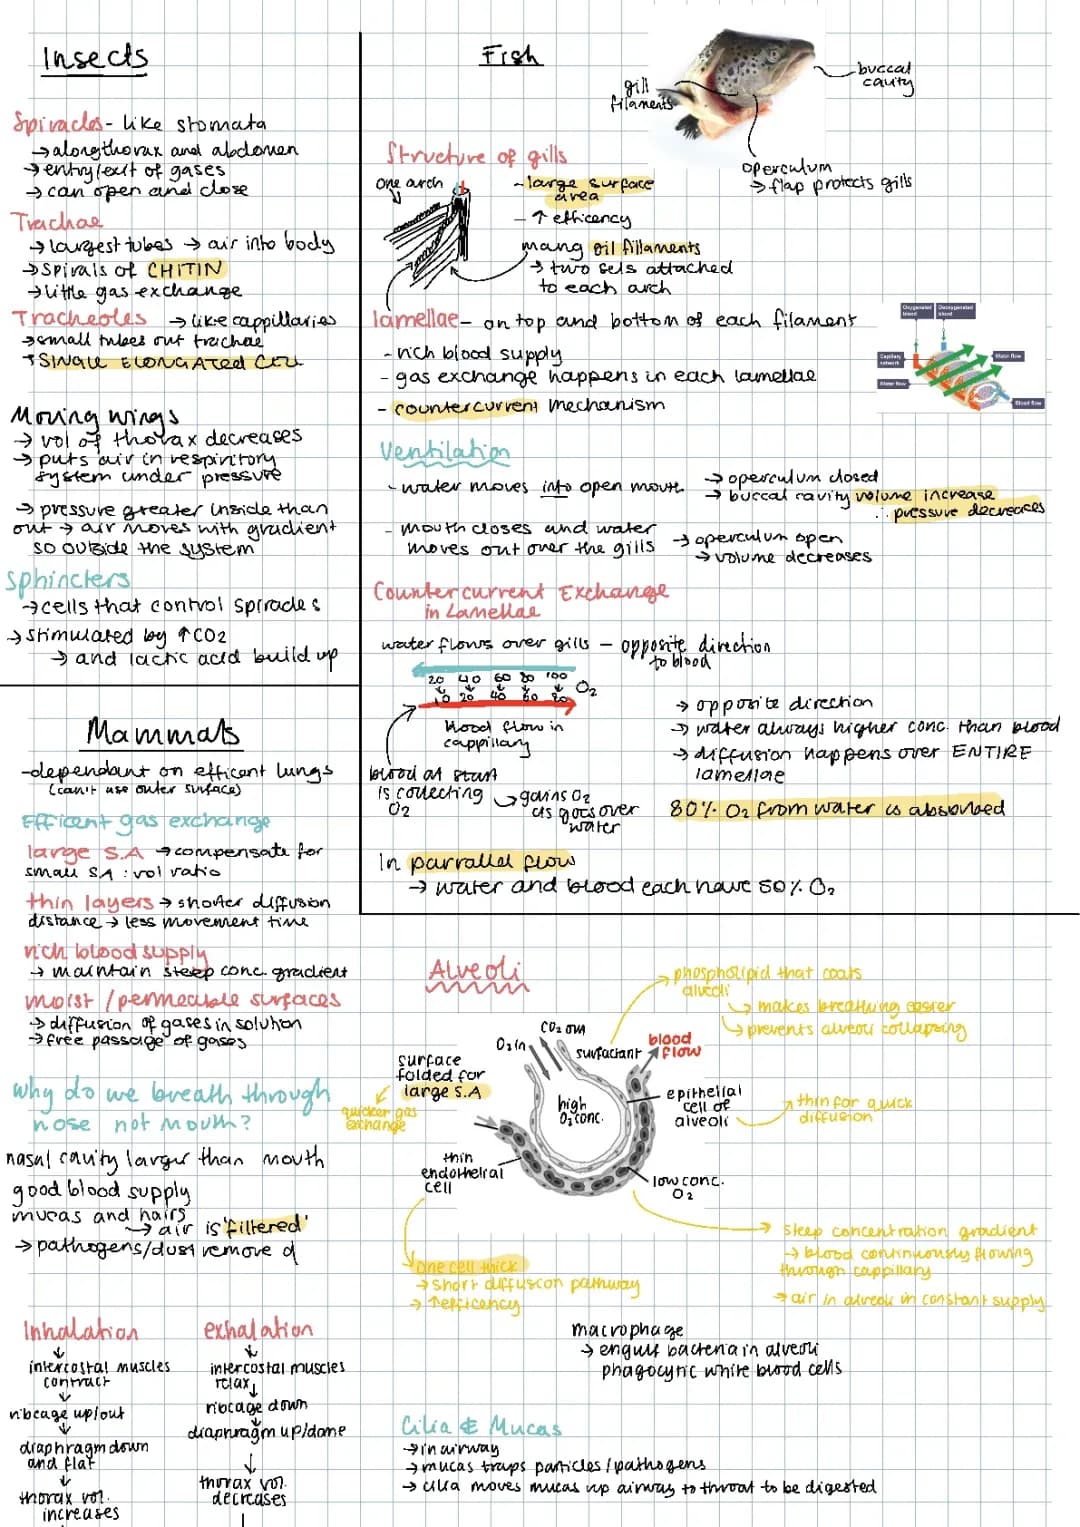 Insects
Spiracles - like stomata
→ along thorax and abdomen
→ entry/exit of gases
→ can open and close
Trachae
→ largest tubes → air into body
→ spirals of CHITIN
→ little gas exchange
Tracheoles → like cappillaries
→ small tubes out trachae
→ SINGLE ELONGATED CELL
Moving wings
→ vol of thorax decreases
→ puts air in respiritory
system under pressure
→ pressure greater inside than
out → air moves with gradient
so outside the system
Sphincters
→ cells that control spiracles
→ stimulated by ↑CO2
→ and lactic acid build up
Fish
gill
filaments
buccal
cavity
operculum
→ flap protects gills
Structure of gills
one arch
- large surface
area
- ↑ efficency
many gill fillaments
→ two sets attached
to each arch
lamellae - on top and bottom of each filament
- rich blood supply
- gas exchange happens in each lamellae
- countercurrent mechanism
Oxygenated blood
Deoxygenated blood
Capillary network
Water flow
Water flow
Blood flow
Ventilation
- water moves into open mouth
→ operculum closed
→ buccal cavity volume increase
∴ pressure decreaces
- mouth closes and water
moves out over the gills
→ operculum open
→ volume decreases
Counter current Exchange
in Lamellae
water flows over gills - opposite direction
to blood
20 40 60 80 100
O₂
10 20 40 60 80
blood flow in
cappillary
blood at start
is collecting
O₂
→ gains O₂
as goes over
water
→ opposite direction
→ water always higher conc. than blood
→ diffusion happens over ENTIRE
lamellae
80% O₂ from water is absorbed
In parrallel flow
→ water and blood each have 50% O₂
Mammals
- dependant on efficent lungs
(can't use outer surface)
Efficent gas exchange
large S.A → compensate for
small SA : vol ratio
thin layers → shorter diffusion
distance → less movement time
rich blood supply
→ maintain steep conc. gradient
moist / permeable surfaces
→ diffusion of gases in solution
→ free passage of gases
Why do we breath through
nose not mouth?
nasal cavity larger than mouth
good blood supply
mucas and hairs
→ air is 'filtered'
→ pathogens/dust removed
Inhalation
↓
intercostal muscles
contract
↓
ribcage up/out
↓
diaphragm down
and flat
↓
thorax vol.
increases
exhalation
↓
intercostal muscles
relax
↓
ribcage down
↓
diaphragm up/dome
↓
thorax vol.
decreases
Alveoli
phospholipid that coats
alveoli
→ makes breathing easier
→ prevents alveoli collapsing
CO₂ out
O₂ in
surfactant
blood
flow
surface
folded for
large S.A
quicker gas
exchange
high
O₂ conc.
epithelial
cell of
alveoli
thin for quick
diffusion
thin
endothelial
cell
low conc.
O₂
one cell thick
→ short diffuscon pathway
→ ↑efficency
steep concentration gradient
→ blood continuously flowing
through cappillary
→ air in alveoli in constant supply
macrophage
→ engulf bacteria in alveoli
phagocytic white blood cells
Cilia & Mucas
→ in airway
→ mucas traps particles / pathogens
→ cilia moves mucas up airway to throat to be digested